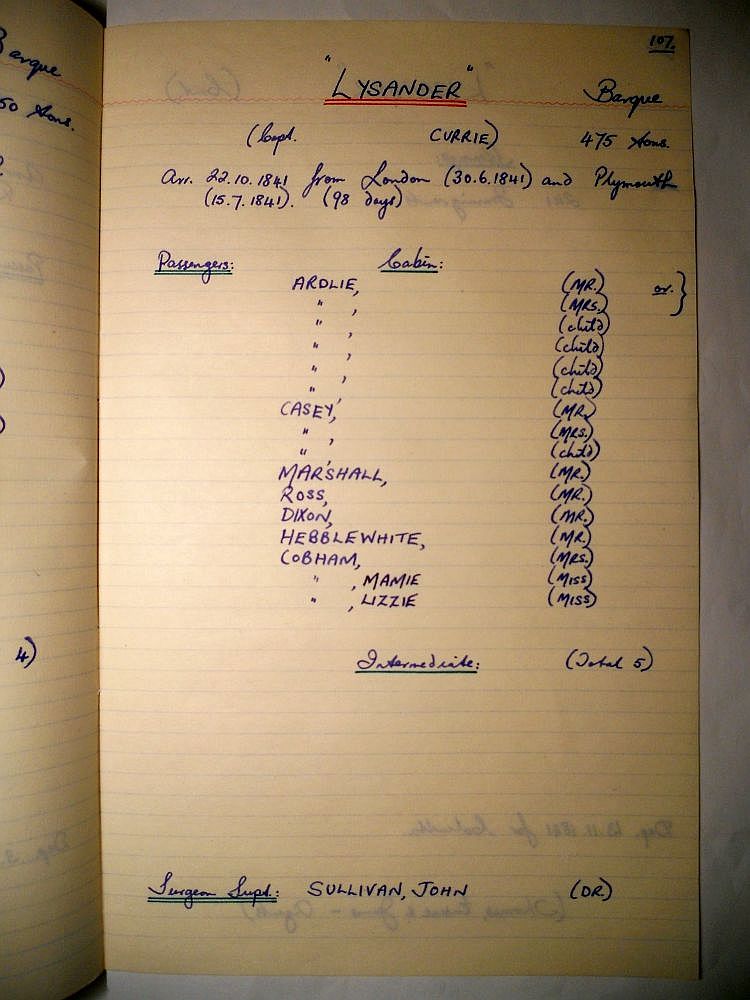 107.
"LYSANDER" Barque
(Capt. CURRIE) 475 tons.
Arr. 22.10.1841 from London (30.6.1841) and Plymouth
(15.7.1841). (98 days)
Passengers: Cabin:
ARDLIE, (MR.) or. }
" , (MRS.)
" , (child)
" , (child)
" , (child)
" , (child)
CASEY, (MR.)
" , (MRS.)
" , (child)
MARSHALL, (MR.)
ROSS, (MR.)
DIXON, (MR.)
HEBBLEWHITE, (MR.)
COBHAM, (MRS.)
" , MAMIE (MISS)
" , LIZZIE (MISS)
Intermediate: (Total 5)
Surgeon Supt.: SULLIVAN, JOHN (DR)
Barque
50 tons.
4)